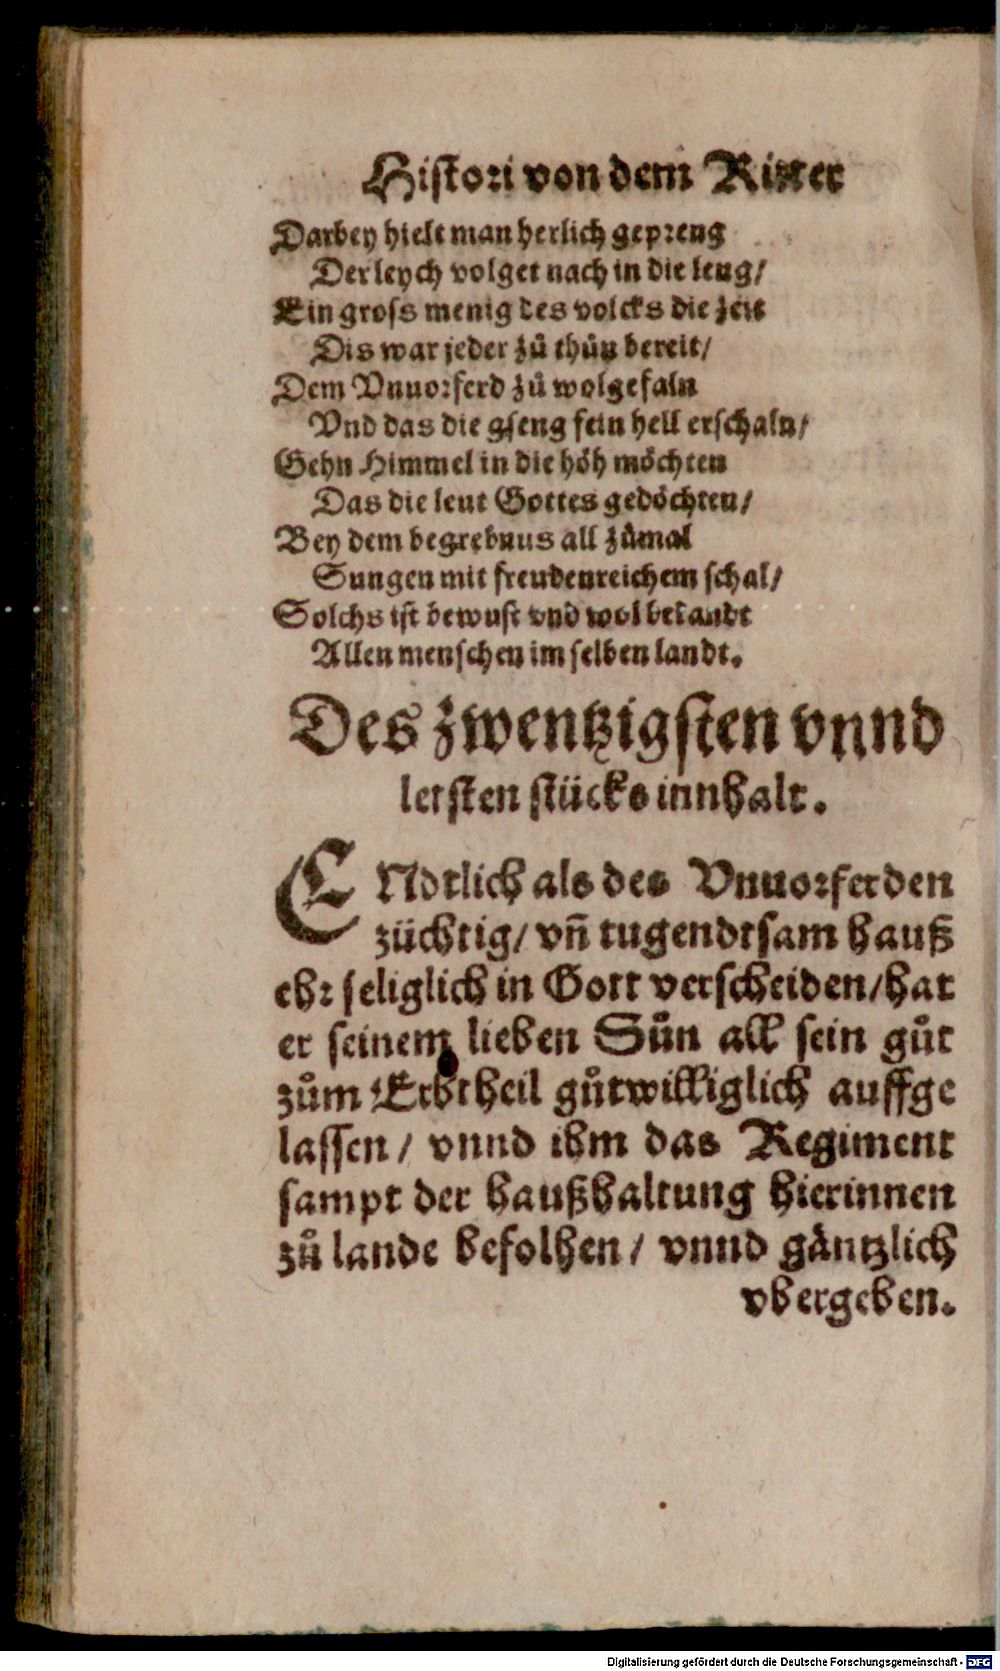 Histori von dem Ritter
Darbey hielt man herlich gepreng
Der leych volget nach in die leng/
Ein gross menig des volcks die zeit
Dis war jeder zů thůn bereit/
Dem Vnuorferd zů wolgefaln
Vnd das die gseng fein hell erschaln/
Gehn Himmel in die höh möchten
Das die leut Gottes gedöchten/
Bey dem begrebnus all zůmal
Sungen mit freudenreichem schal/
Solchs ist bewust vnd wol bekandt
Allen menschen im selben landt.
Des zwentzigsten vnnd
letsten stücks innhalt.
ENdtlich als des Vnuorferden
züchtig/ vñ tugendtsam hauß
ehr seliglich in Gott verscheiden/ hat
er seinem lieben Sůn all sein gůt
zům Erbtheil gůtwilliglich auffge
lassen/ vnnd ihm das Regiment
sampt der haußhaltung hierinnen
zů lande befolhen/ vnnd gäntzlich
vbergeben.
Digitalisierung gefördert durch die Deutsche Forschungsgemeinschaft - DFG